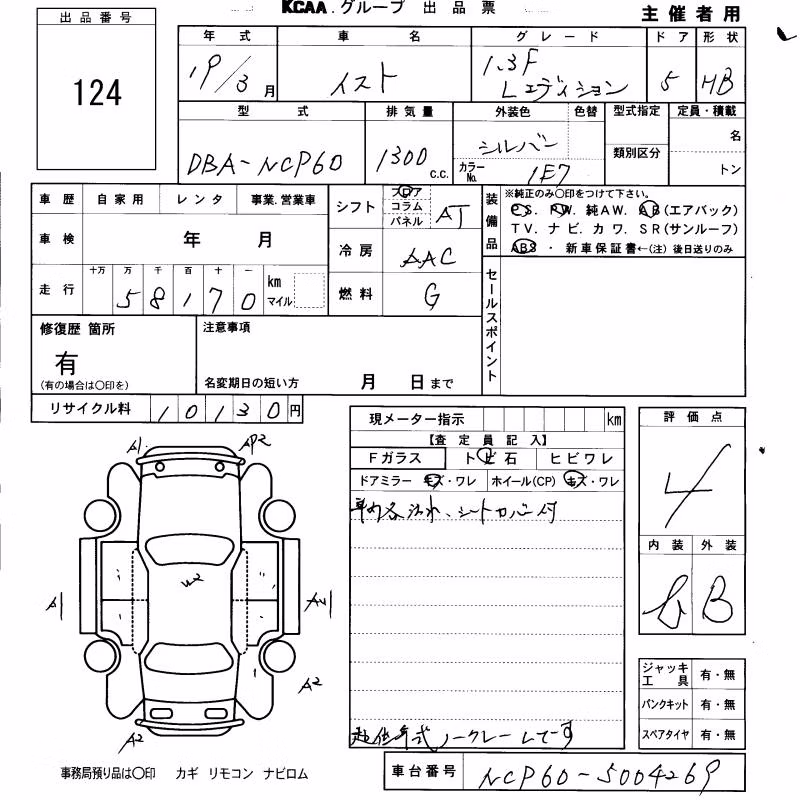 KCAA.グループ 出品票
主催者用
出品番号
124
年式 車名 グレード ドア 形状
19/3月 イスト 1.3F Lエディション 5 HB
型式 排気量 外装色 色替 型式指定 定員・積載
DBA-NCP60 1300 C.C. シルバー カラーNo. 1E7 類別区分 名 トン
車歴 自家用 レンタ 事業.営業車
車検 年 月
走行 十万 万 千 百 十 一 km マイル
58170
シフト フロア コラム パネル AT
冷房 AAC
燃料 G
装備品 ※純正のみ○印をつけて下さい。
P.S. P.W. 純AW. AB(エアバック)
TV. ナビ. カワ. SR(サンルーフ)
ABS ・ 新車保証書←(注) 後日送りのみ
セールスポイント
修復歴 箇所
有
(有の場合は○印を)
注意事項
名変期日の短い方 月 日まで
リサイクル料 10130円
現メーター指示 km
【査定員記入】
Fガラス トビ石 ヒビワレ
ドアミラー キズ・ワレ ホイール(CP) キズ・ワレ
シートカバー付
年式ノークレームです
評価点
4
内装 外装
b B
ジャッキ工具 有・無
パンクキット 有・無
スペアタイヤ 有・無
A1 AP2
W2
A1 A2
A2
A2
事務局預り品は○印 カギ リモコン ナビロム
車台番号 NCP60-5004269